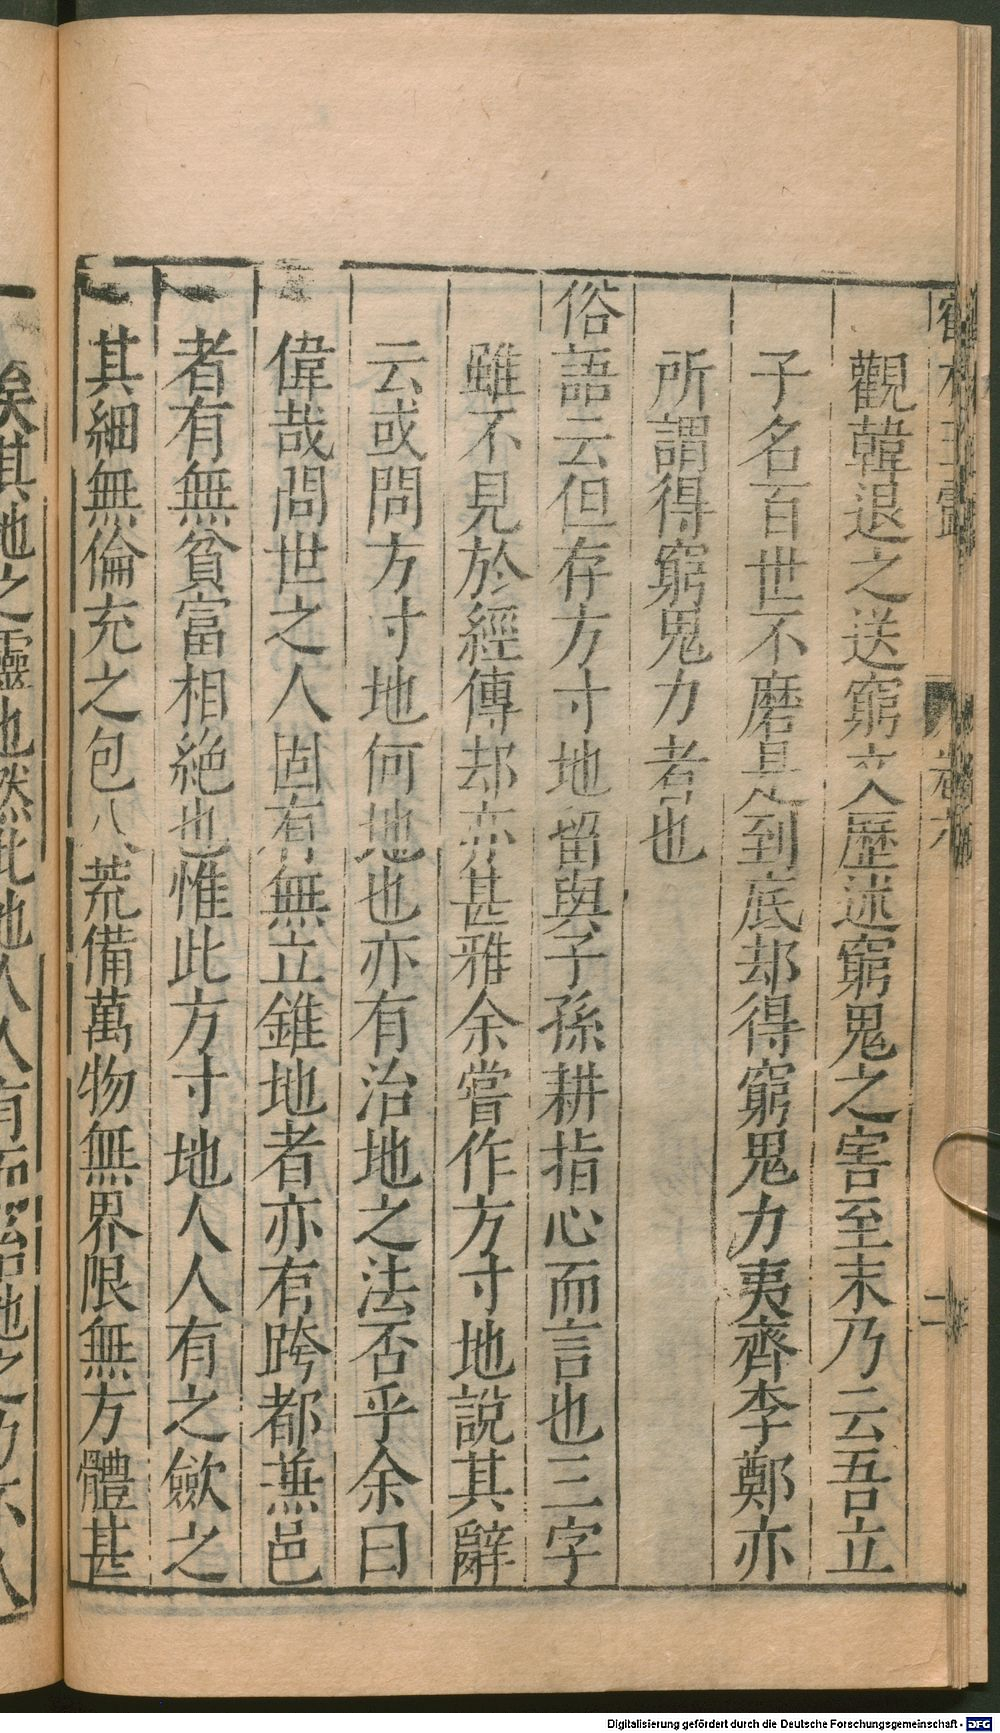 觀韓退之送窮文歷述窮鬼之害至末乃云吾立
子名百世不磨是到底却得窮鬼力夷齊李鄭亦
所謂得窮鬼力者也
俗語云但存方寸地留與子孫耕指心而言也三字
雖不見於經傳却亦甚雅余嘗作方寸地說其辭
云或問方寸地何地也亦有治地之法否乎余曰
偉哉問世之人固有無立錐地者亦有跨都兼邑
者有無貧富相絶也惟此方寸地人人有之斂之
其細無倫充之包八荒備萬物無界限無方體甚
矣其地之靈也然此地人人有而治地之乃不人
卷六
二
Digitalisierung gefördert durch die Deutsche Forschungsgemeinschaft - DFG